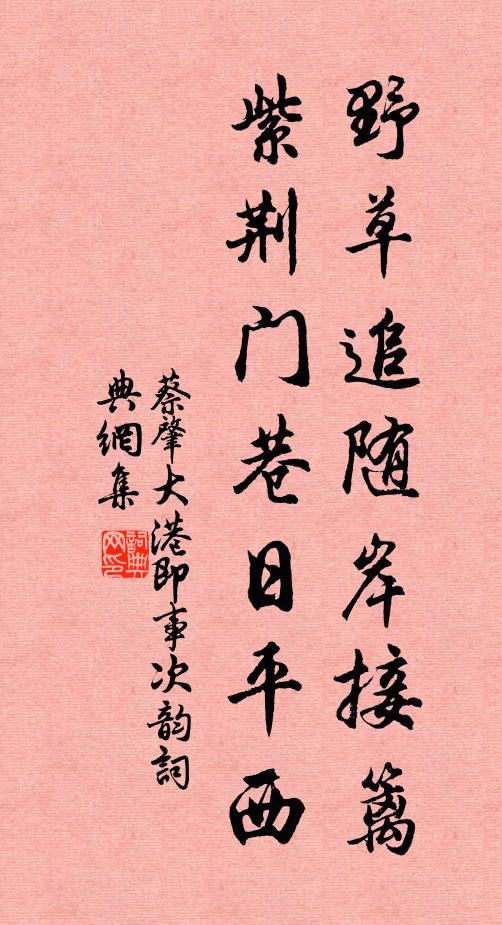 野草追随岸接篱
紫荆门巷日平西
蔡肇大港即事次韵词
典網集
詞典
网印